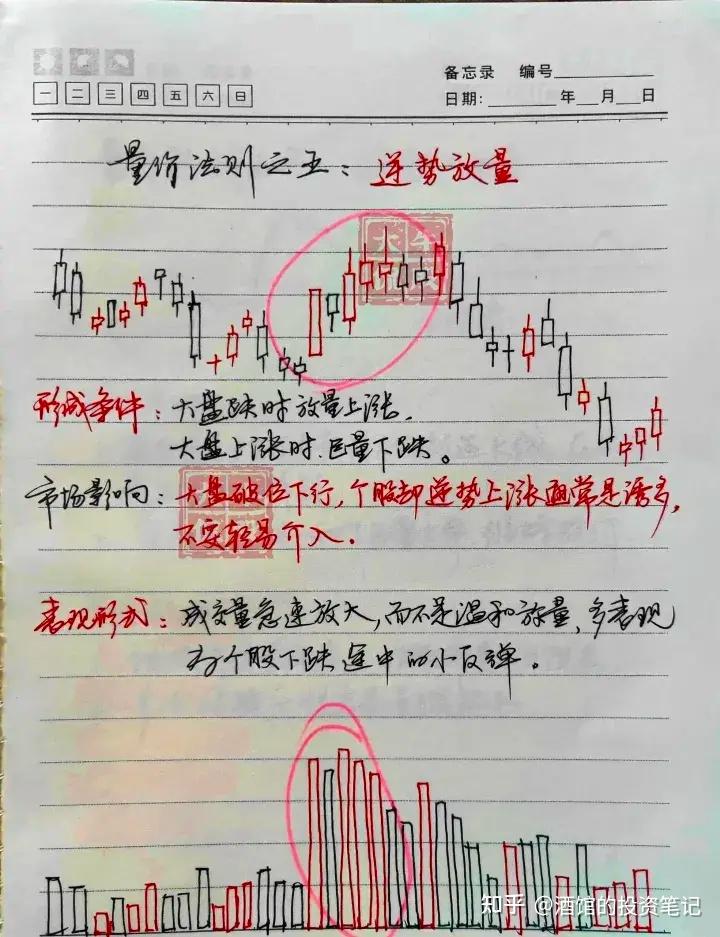 备忘录 编号
一 二 三 四 五 六 日
日期: 年 月 日
量价法则之五：逆势放量
形成条件：大盘跌时放量上涨，
大盘上涨时.巨量下跌。
市场影响：大盘破位下行，个股却逆势上涨通常是诱多，
不要轻易介入.
表现形式：成交量急速放大，而不是温和放量，多表现
为个股下跌途中的小反弹。
知乎 @酒馆的投资笔记